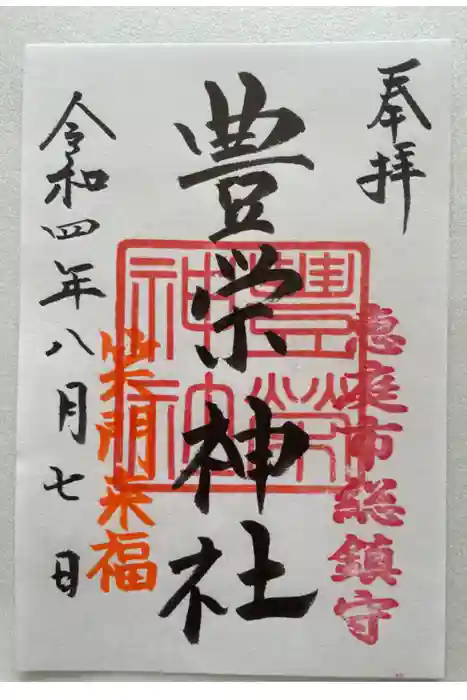 奉拝
恵庭市総鎮守
豊栄神社
豊栄神社
笑門来福
令和四年八月七日